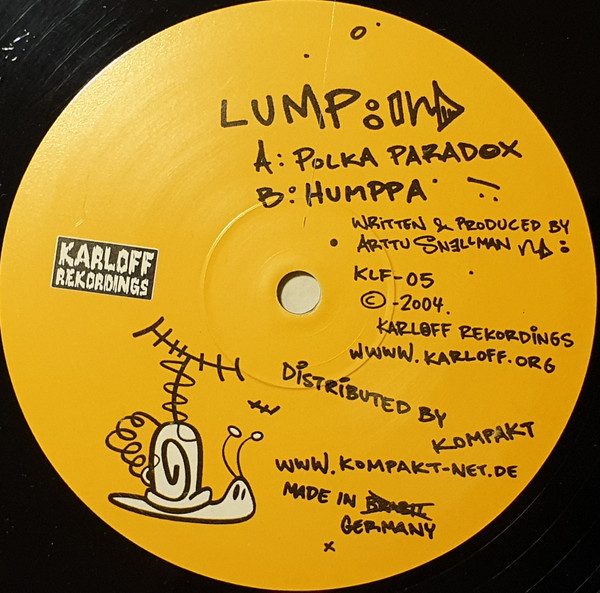 LUMP
A: POLKA PARADOX
B: HUMPPA
WRITTEN & PRODUCED BY
ARTTU SNELLMAN
KARLOFF
REKORDINGS
KLF-05
© -2004.
KARLOFF REKORDINGS
WWWW.KARLOFF.ORG
DISTRIBUTED BY
KOMPAKT
WWW.KOMPAKT-NET.DE
MADE IN BRASIL
GERMANY